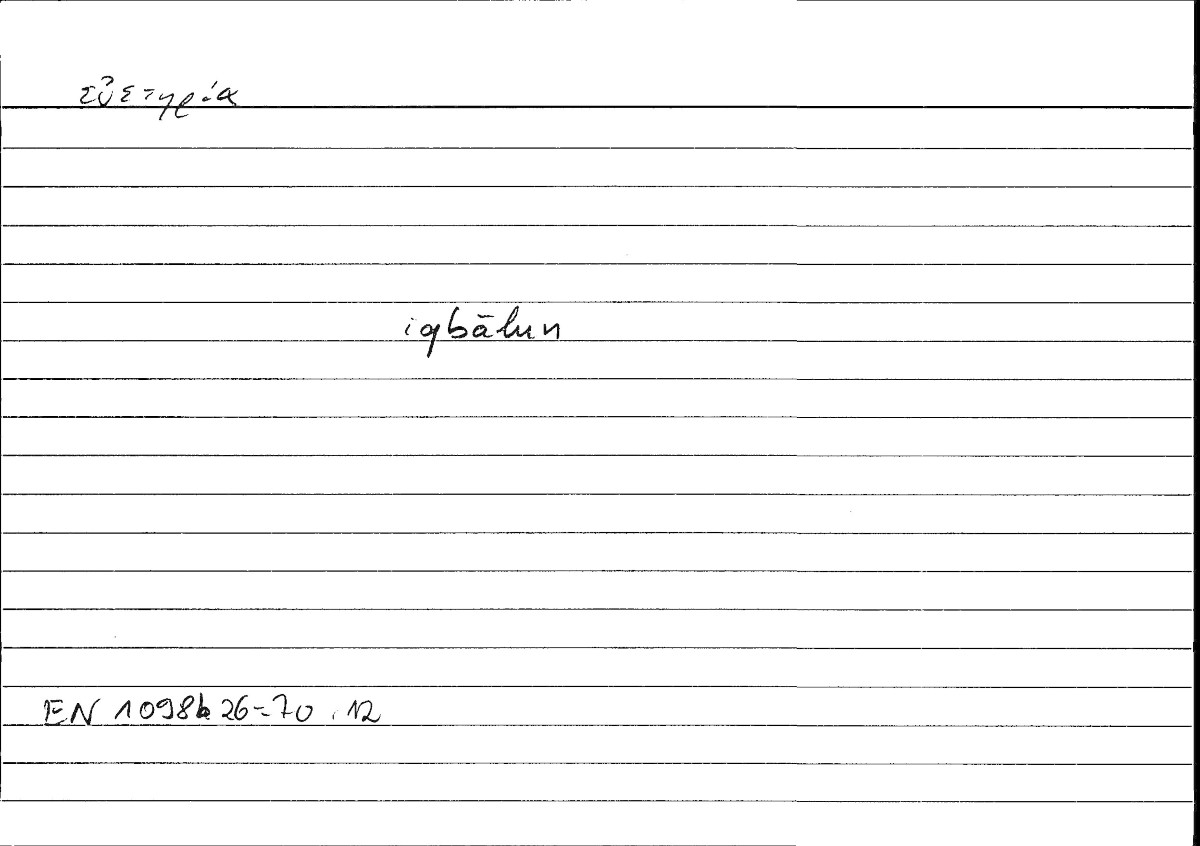 εὐετηρία
iqbālun
EN 1098b26=70.12